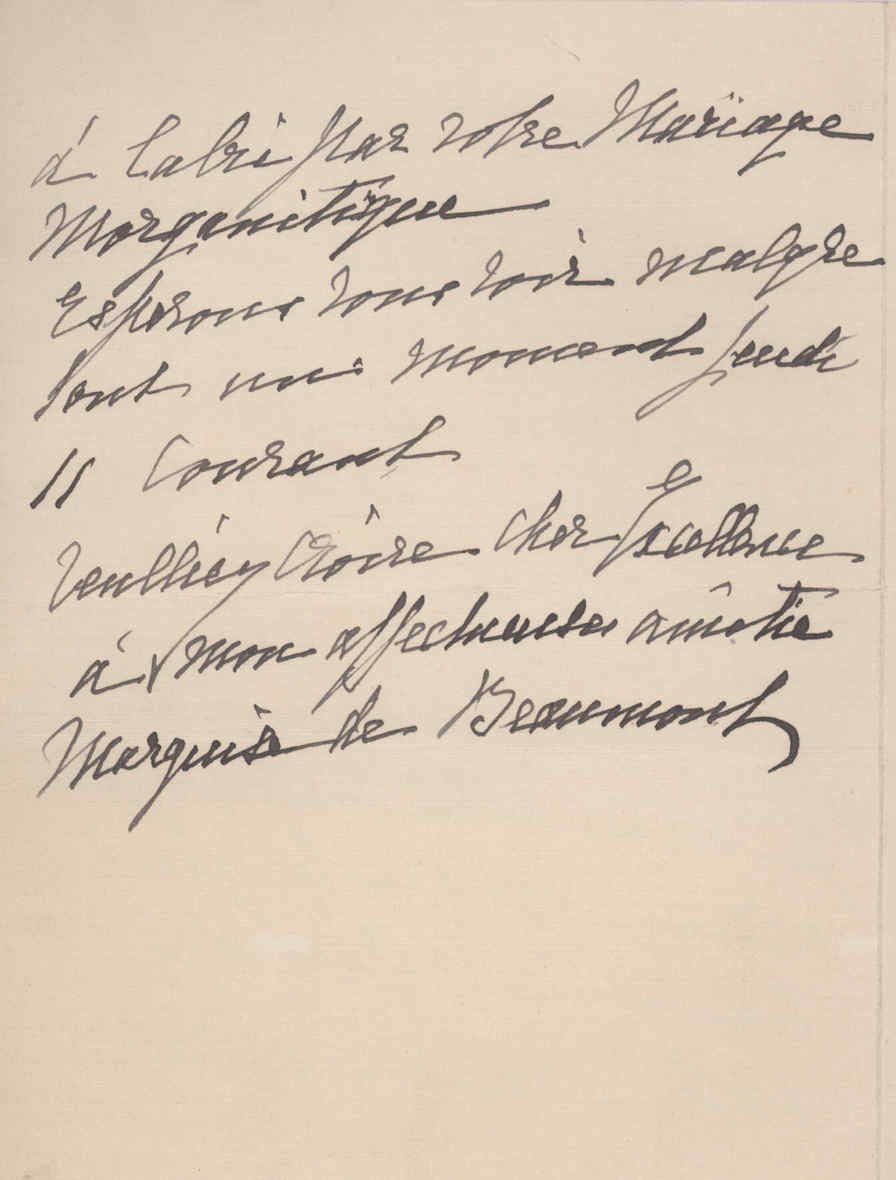 à l'abri par votre Mariage
Morganitique
Esperons vous voir malgre
tout un moment Jeudi
11 Courant
Veuilliez croire cher Excellence
à mon affectueuse amitié
Marquise de Beaumont